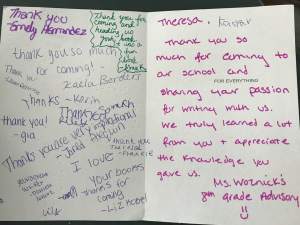 Thank you
Emily Hernandez
Thank you for
coming and
reading us
your book
it was a
fun
thank you so much
for coming!
Zaela Borders
THANKS - Karin
thank you!
-gia
Thanks so much
Thanks you are very inspirational
-Jared
THANK YOU
I love
your books
thanks for
coming
-Liz
Theresa,
Thank you so
FOR EVERYTHING
much for coming to
our school and
sharing your passion
for writing with us.
We truly learned a lot
from you + appreciate
the knowledge you
gave us.
Ms. Woznick's
8th grade Advisory